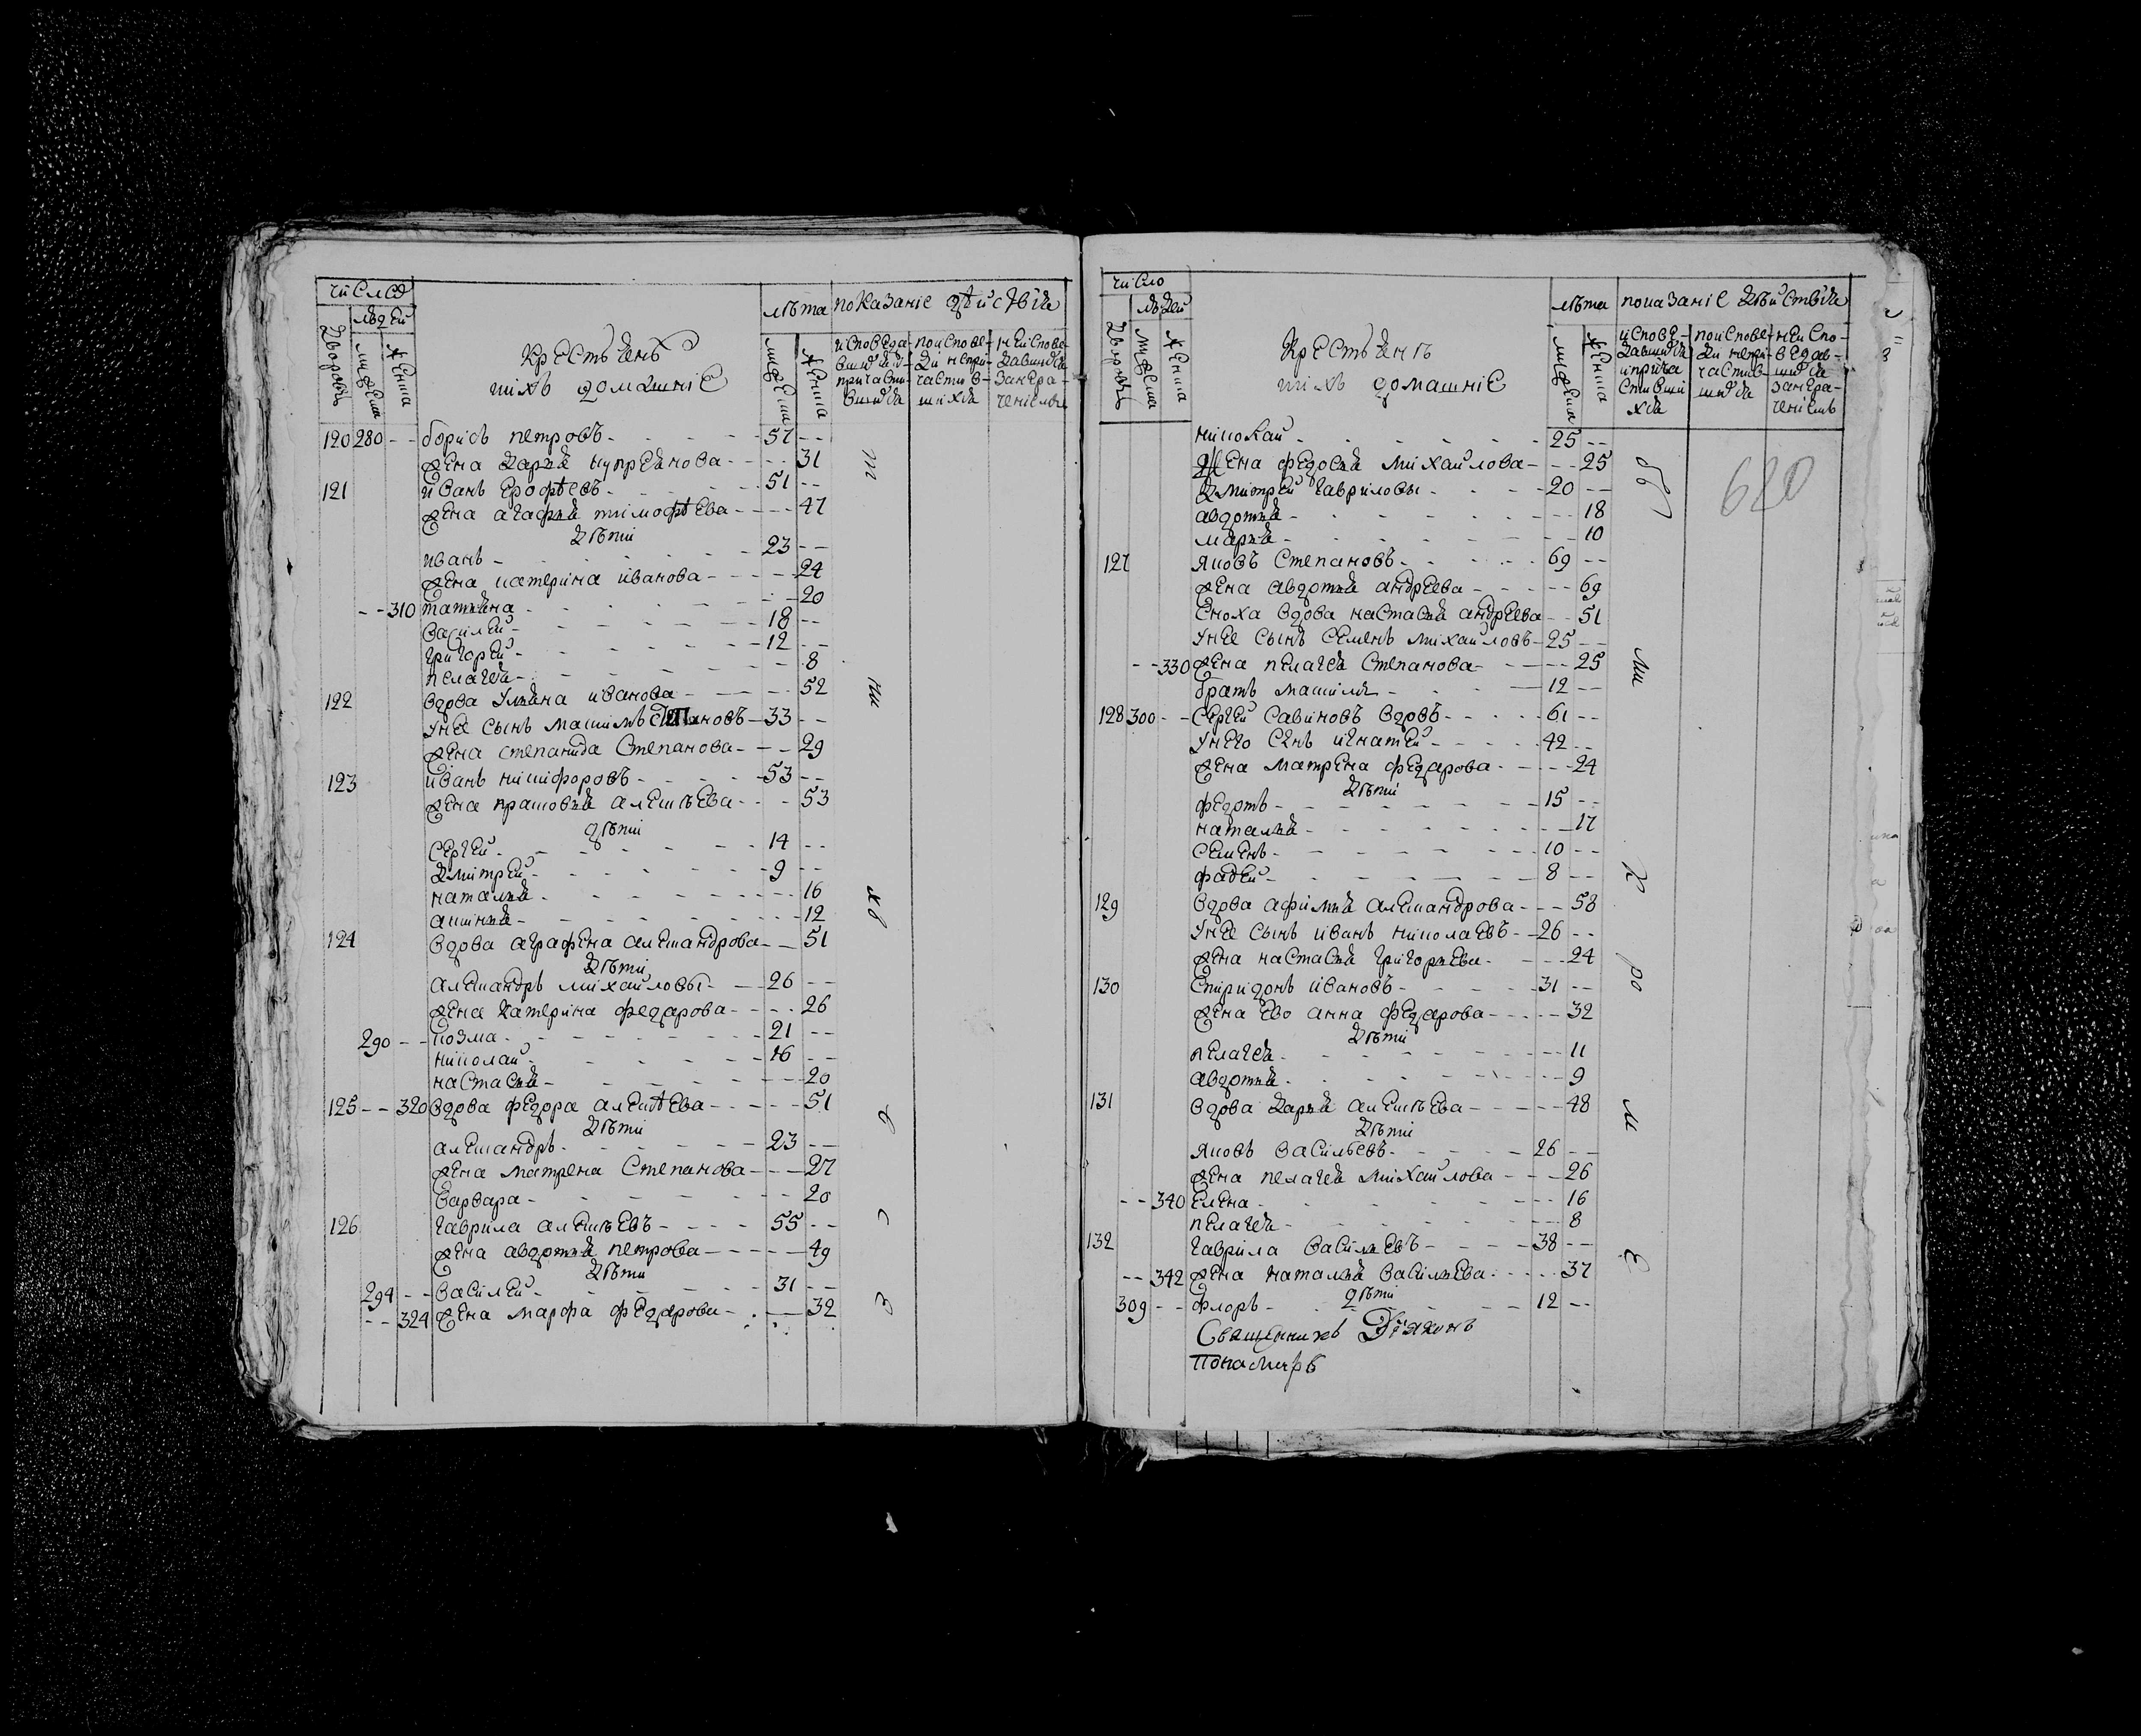 число
людей
дворовъ
мужеска
женска
крестьянѣ
тихъ домашніе
лѣта
мужеска
женска
показаніе дѣйствія
исповеда-
вшихся и
причасти-
вшихся
по испове-
ди не при-
частив-
шихся
не испове-
давшихся
за нера-
чениемъ
120 280 - - борисъ петровъ - 57 - -
жена дарья купреянова - - - 31
121 иванъ ерофѣевъ - 51 - -
жена агафья тимофѣева - - - 47
дѣти
иванъ - 23 - -
жена катерина иванова - - - 24
- - 310 татьяна - - - 20
василей - 18 - -
григорей - 12 - -
пелагея - - - 8
122 вдова ульяна иванова - - - 52
у нее сынъ максимъ степановъ - 33 - -
жена степанида степанова - - - 29
123 иванъ никифоровъ - 53 - -
жена прасковья алексѣева - - - 53
дѣти
сергей - 14 - -
дмитрей - 9 - -
наталья - - - 16
аксинья - - - 12
124 вдова аграфена александрова - - 51
дѣти
александръ михайловы - 26 - -
жена катерина федарова - - - 26
290 - - козма - 21 - -
николай - 16 - -
настасья - - - 20
125 - - 320 вдова федора алексѣева - - - 51
дѣти
александръ - 23 - -
жена матрена степанова - - - 27
варвара - - - 20
126 гаврила алексѣевъ - 55 - -
жена авдотья петрова - - - 49
дѣти
294 - - василей - 31 - -
- - 324 жена марфа федарова - - - 32
число
людей
дворовъ
мужеска
женска
крестьянѣ
тихъ домашніе
лѣта
мужеска
женска
показаніе дѣйствія
исповѣ-
давшихся
и прича
стивши
хся
по испове-
ди не при-
частив-
шихся
не испо-
ведав-
шихся
за нера-
чениемъ
николай - 25 - -
жена федосья михайлова - - - 25
дмитрей гавриловы - 20 - -
авдотья - - - 18
марья - - - 10
620
127 яковъ степановъ - 69 - -
жена авдотья андреева - - - 69
сноха вдова настасья андреева - - 51
у нее сынъ семенъ михайловъ - 25 - -
- - 330 жена пелагея степанова - - - 25
братъ максимъ - 12 - -
128 300 - - сергей савиновъ вдовъ - 61 - -
у него сынъ игнатей - 42 - -
жена матрена федарова - - - 24
дѣти
федотъ - 15 - -
наталья - - - 17
семенъ - 10 - -
фадей - 8 - -
129 вдова афимья александрова - - - 58
у нее сынъ иванъ николаевъ - 26 - -
жена настасья григорьева - - - 24
130 спиридонъ ивановъ - 31 - -
жена ево анна федарова - - - 32
дѣти
пелагея - - - 11
авдотья - - - 9
131 вдова дарья алексѣева - - - 48
дѣти
яковъ васильевъ - 26 - -
жена пелагея михайлова - - - 26
- - 340 елена - - - 16
пелагея - - - 8
132 гаврила васильевъ - 38 - -
- - 342 жена наталья васильева - - - 37
дѣти
309 - - флоръ - 12 - -
Священникъ Дьяконъ
Понамарь